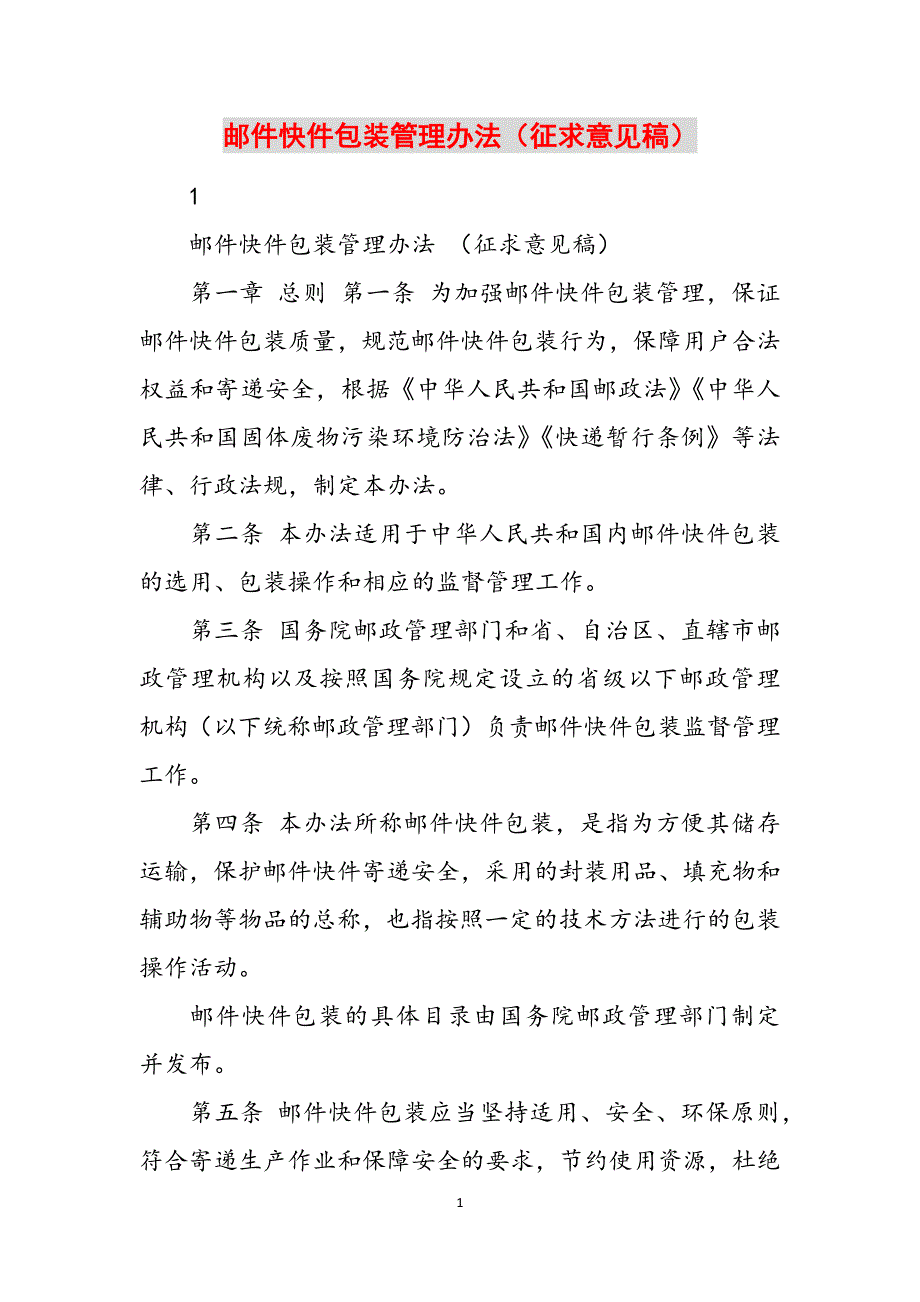 邮件快件包装管理办法（征求意见稿）
1
邮件快件包装管理办法 （征求意见稿）
第一章 总则 第一条 为加强邮件快件包装管理，保证
邮件快件包装质量，规范邮件快件包装行为，保障用户合法
权益和寄递安全，根据《中华人民共和国邮政法》《中华人
民共和国固体废物污染环境防治法》《快递暂行条例》等法
律、行政法规，制定本办法。
第二条 本办法适用于中华人民共和国内邮件快件包装
的选用、包装操作和相应的监督管理工作。
第三条 国务院邮政管理部门和省、自治区、直辖市邮
政管理机构以及按照国务院规定设立的省级以下邮政管理
机构（以下统称邮政管理部门）负责邮件快件包装监督管理
工作。
第四条 本办法所称邮件快件包装，是指为方便其储存
运输，保护邮件快件寄递安全，采用的封装用品、填充物和
辅助物等物品的总称，也指按照一定的技术方法进行的包装
操作活动。
邮件快件包装的具体目录由国务院邮政管理部门制定
并发布。
第五条 邮件快件包装应当坚持适用、安全、环保原则，
符合寄递生产作业和保障安全的要求，节约使用资源，杜绝
1